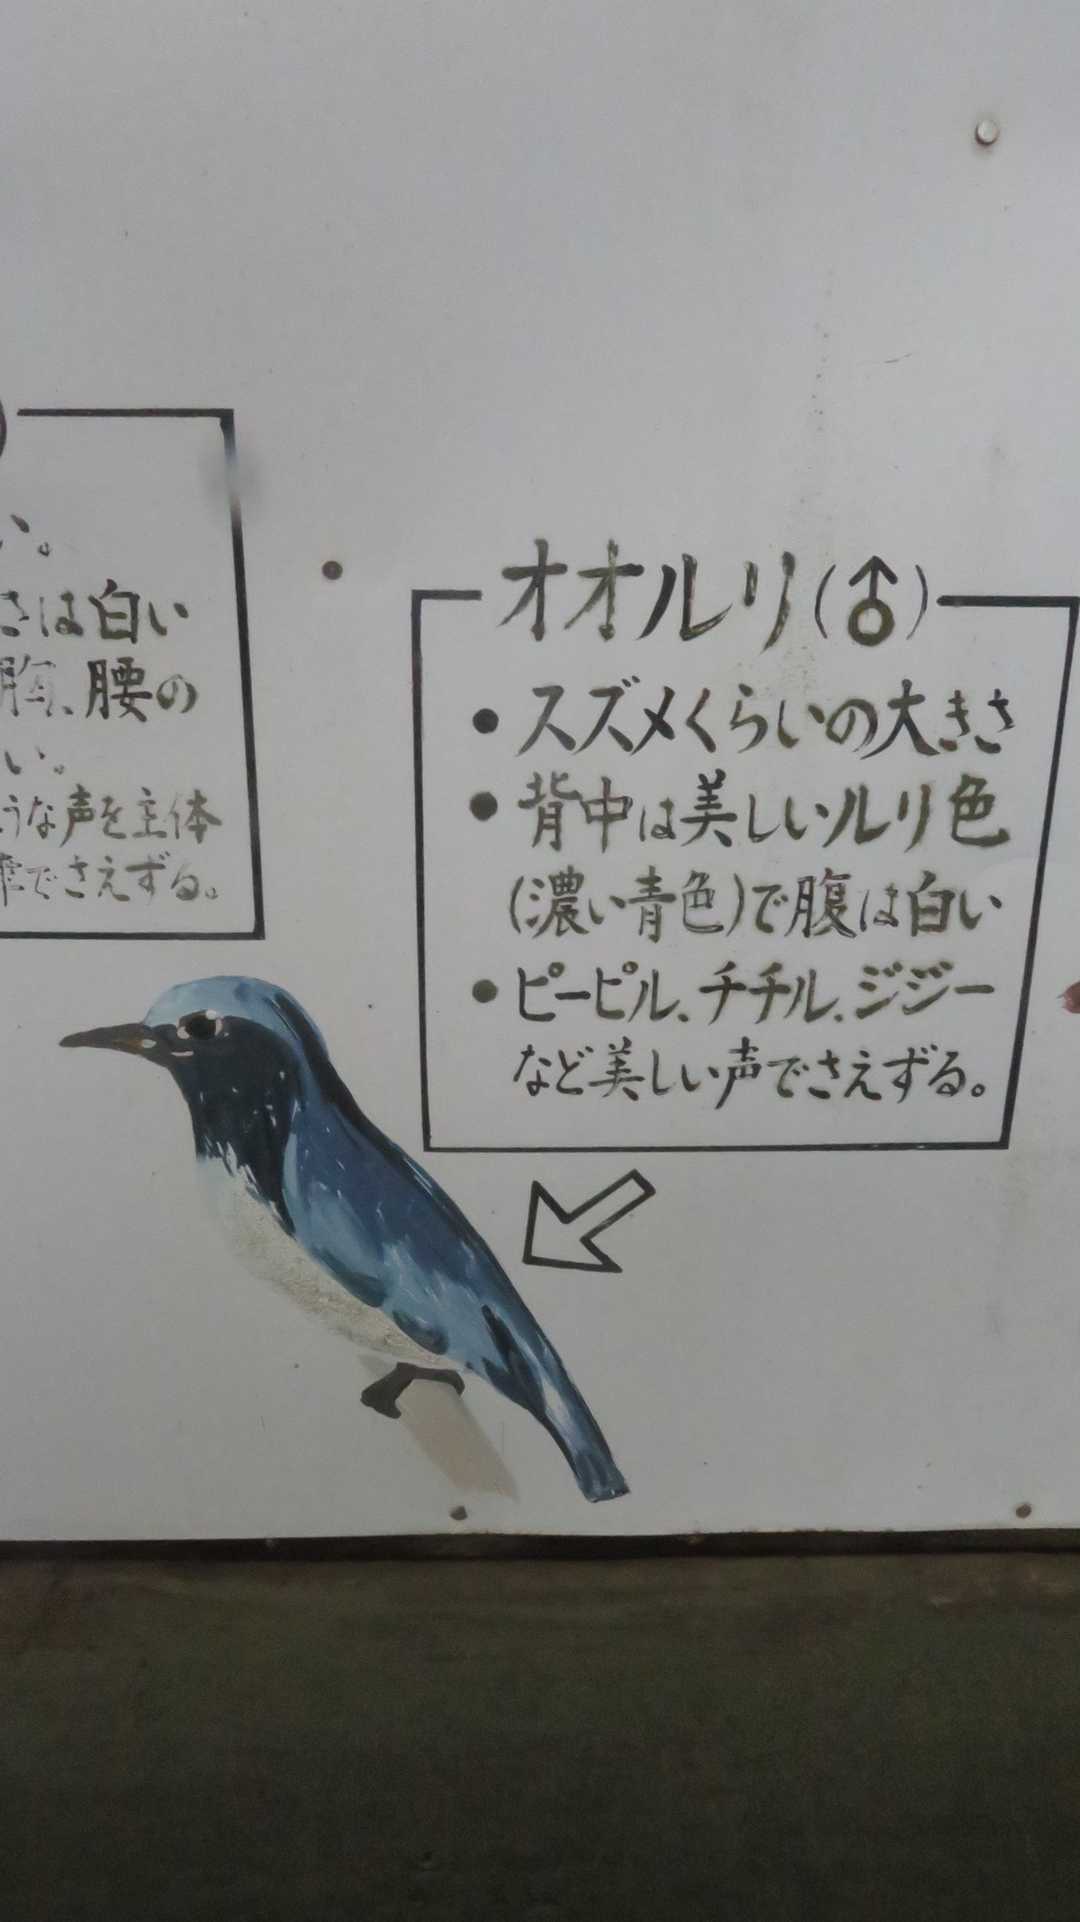 い。
さは白い
胸、腰の
い。
うな声を主体
でさえずる。
オオルリ(♂)
●スズメくらいの大きさ
●背中は美しいルリ色
(濃い青色)で腹は白い
●ピーピル、チチル、ジジー
など美しい声でさえずる。